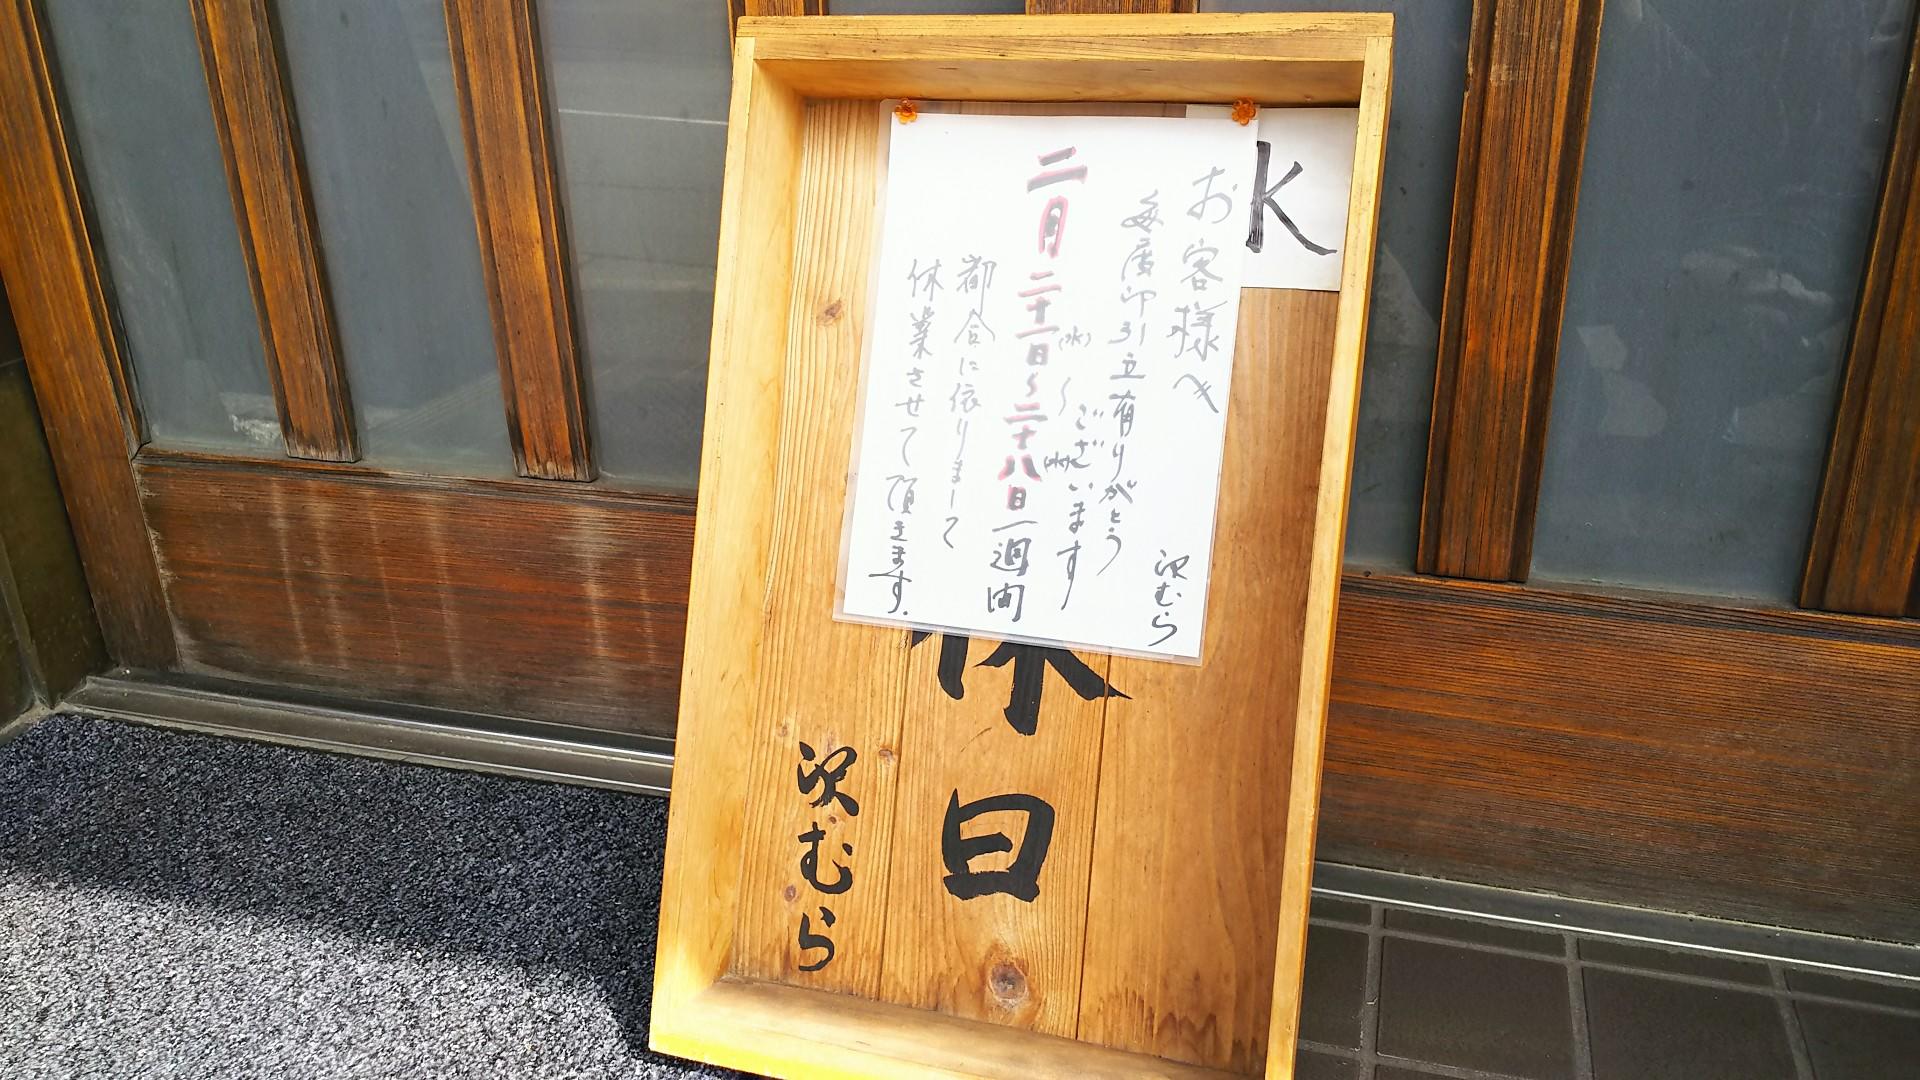 お客様へ
毎度御引立有りがとう
ございます
二月二十一日(水)〜二十八日(水)一週間
都合に依りまして
休業させて頂きます.
沢むら
休日
沢むら